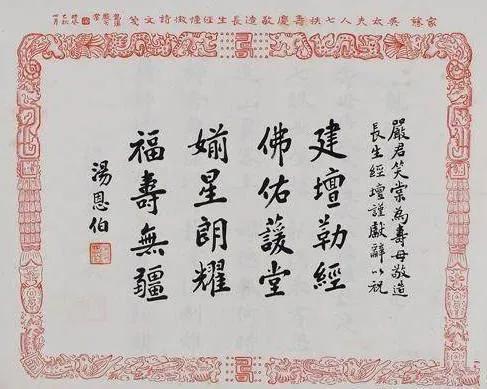 家慈 吳太夫人七秩壽慶敬造長生經幢徵詩文箋
嚴君笑棠為壽母敬造
長生經壇謹獻辭以祝
建壇勒經
佛佑蘐堂
媊星朗耀
福壽無疆
湯恩伯